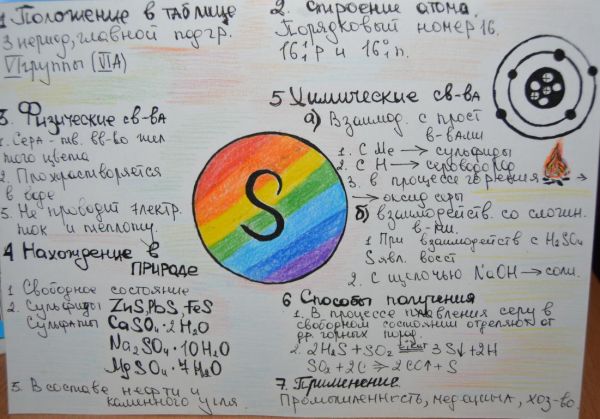 1 Положение в таблице
3 период, главной подгр.
VI группы (VIA)
2. Строение атома.
Порядковый номер 16.
16 1 1 p и 16 0 1 n.
3. Физические св-ва
1. Сера - тв. вв-во жел
того цвета
2. Плохрастворяется
в воде
3. Не проводит электр.
ток и теплоту.
4 Нахождение в
природе
1 Свободное состояние
2. Сульфиды ZnS, PbS, FeS
Сульфаты CaSO₄·2H₂O
Na₂SO₄·10H₂O
MgSO₄·7H₂O
5. В составе нефти и
каменного угля.
S
5 Химические св-ва
а) Взаимод. с прост
в-вами
1. С Me → сульфиды
2. С H → сероводород
3. в процессе горения →
→ оксид серы
б) взаимодейств. со сложн.
в-ми.
1 При взаимодейств с H₂SO₄
S явл. восст
2. С щелочью NaOH → соли.
6 Способы получения
1. В процессе плавления серу в
свободном состоянии отделяют от
др. горных пород.
2. 2H₂S + SO₂ 3S↓ + 2H
SO₂ + 2C → 2CO↑ + S
7. Применение.
Промышленность, медицина, хоз-во.